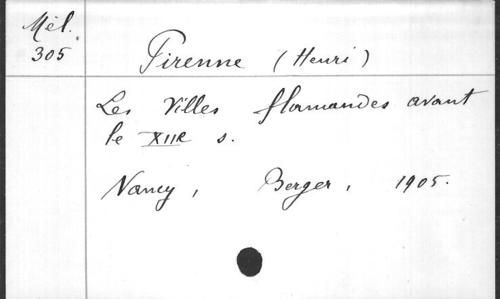 Mél.
305
Pirenne (Henri)
Les Villes flamandes avant
le XIIe s.
Nancy, Berger, 1905.